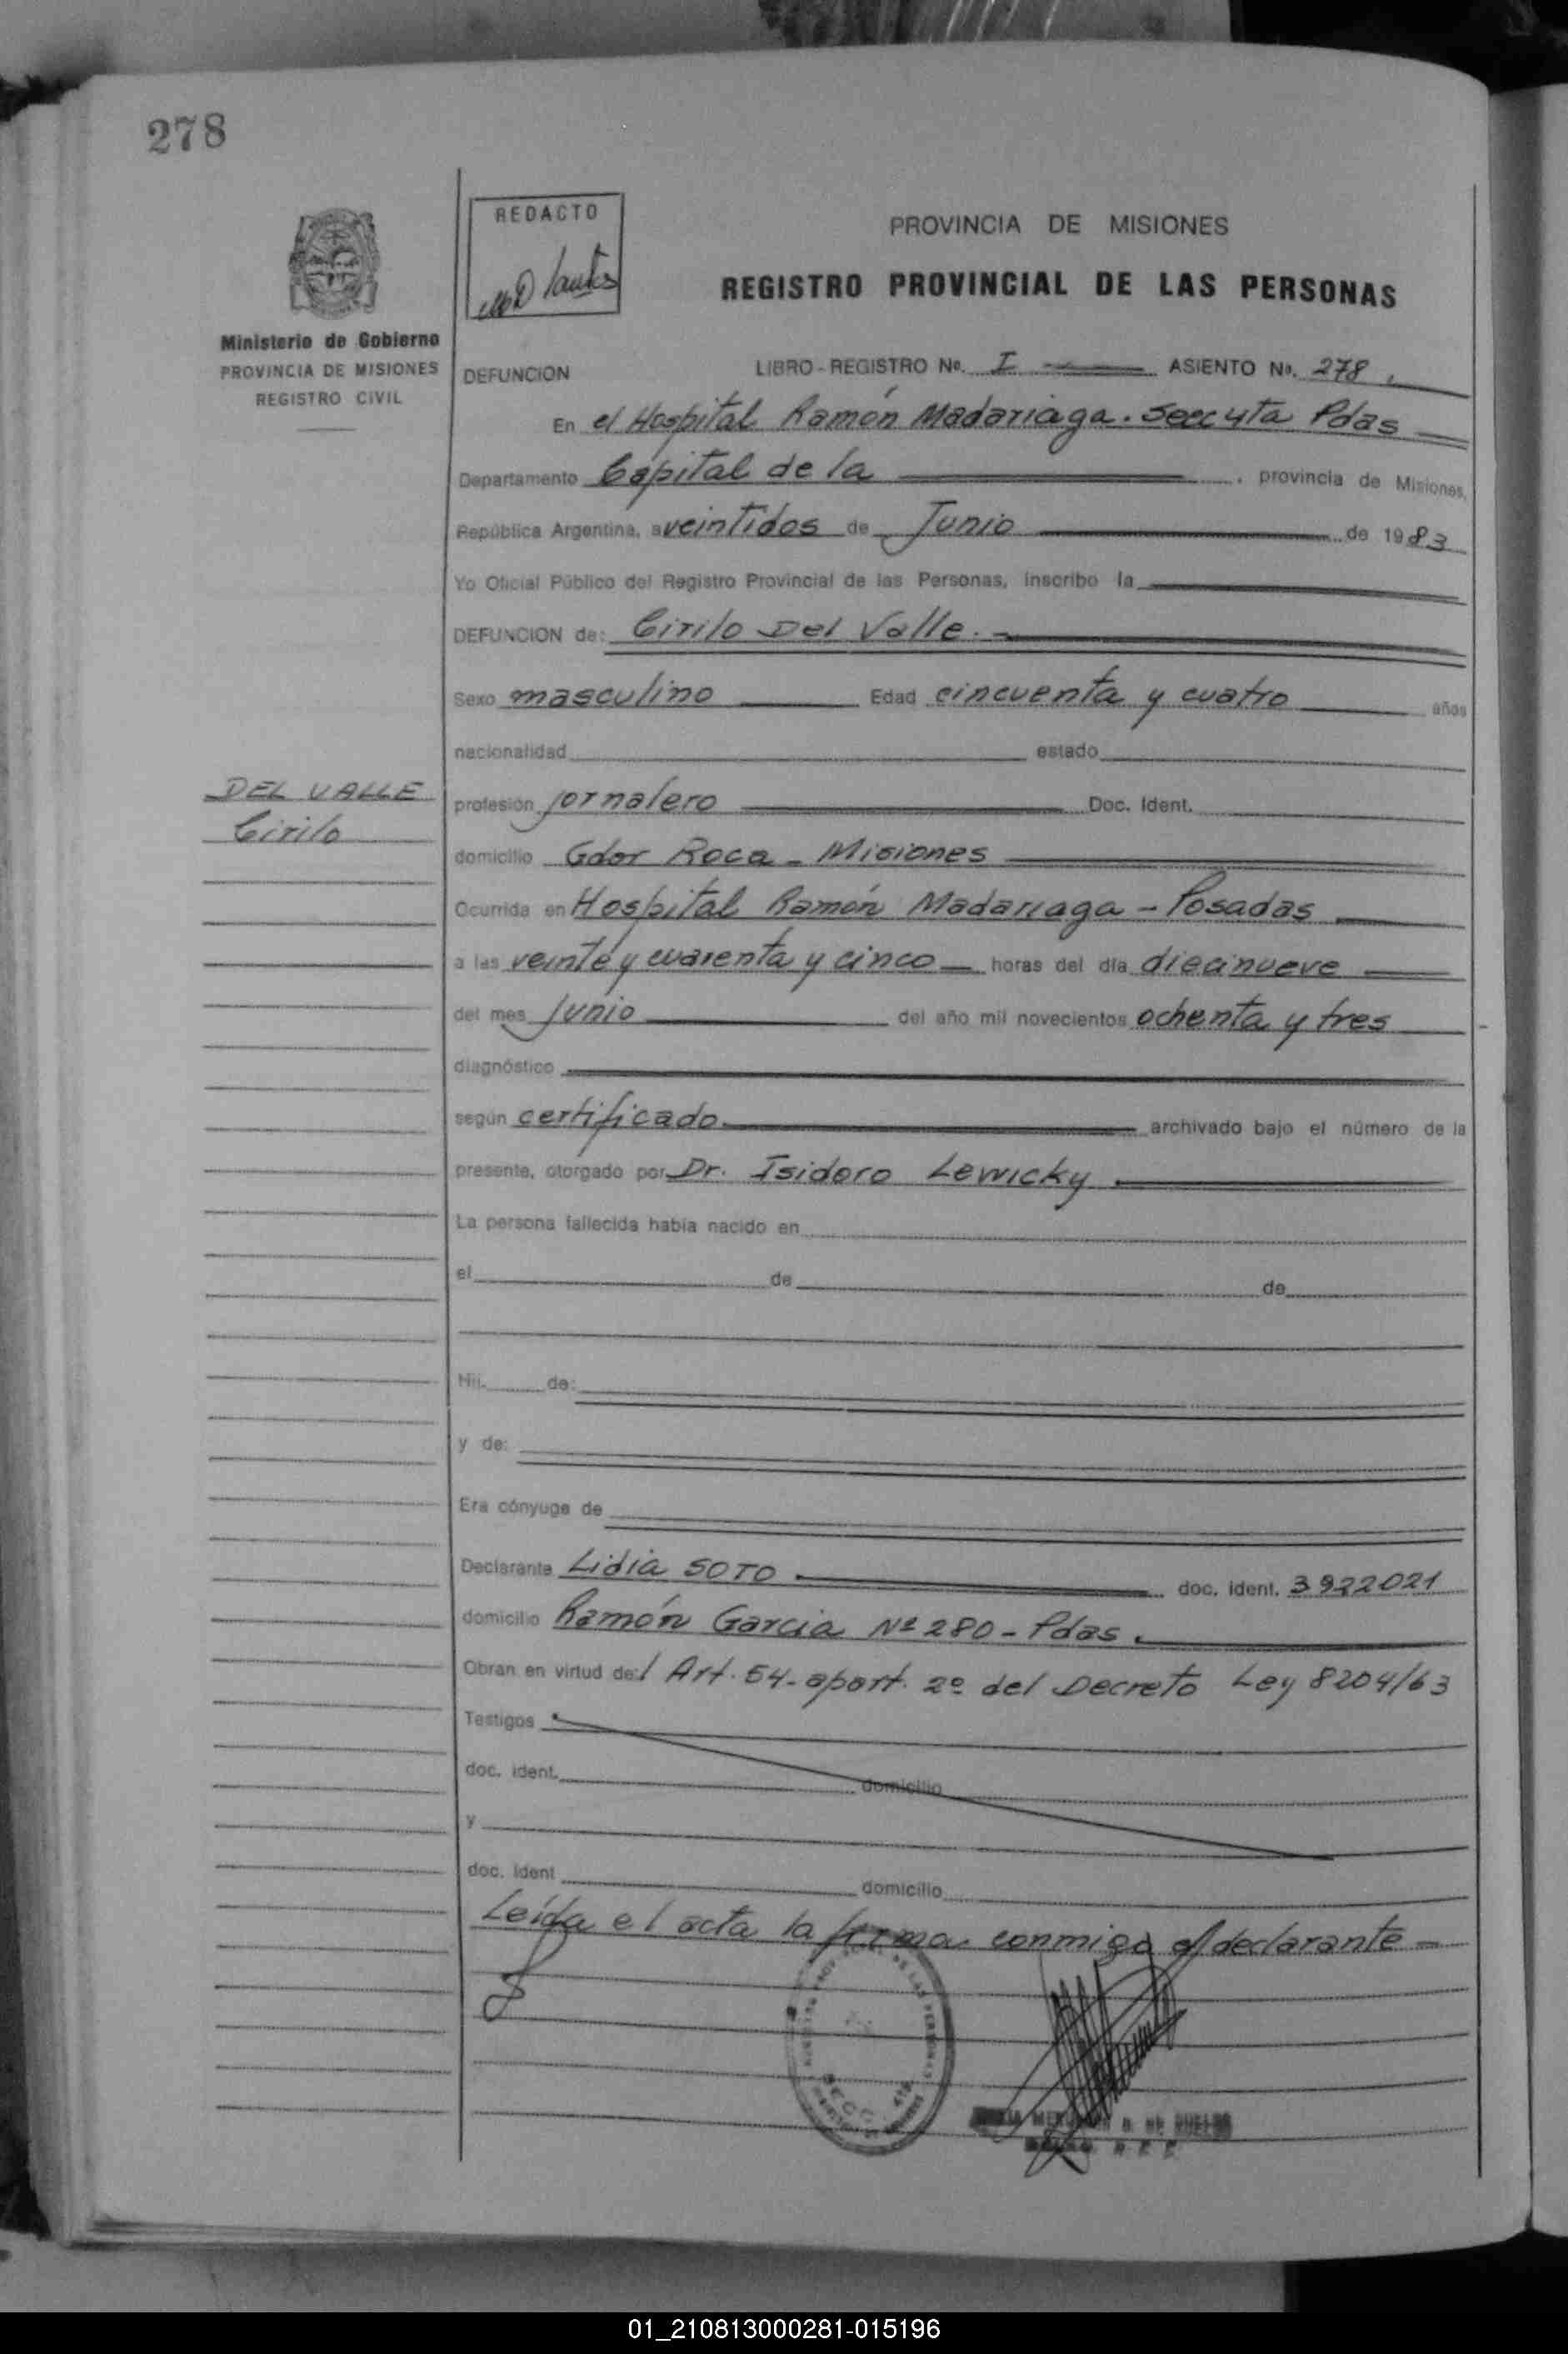 278
REDACTO
PROVINCIA DE MISIONES
REGISTRO PROVINCIAL DE LAS PERSONAS
Ministerio de Gobierno
PROVINCIA DE MISIONES
REGISTRO CIVIL
DEFUNCION LIBRO - REGISTRO No. I ASIENTO No. 278
En el Hospital Ramón Madariaga. Secc 4ta Pdas
Departamento Capital de la , provincia de Misiones,
República Argentina, a veintidos de Junio de 1983
Yo Oficial Público del Registro Provincial de las Personas, inscribo la
DEFUNCION de: Cirilo Del Valle.
Sexo masculino Edad cincuenta y cuatro años
nacionalidad estado
DEL VALLE
Cirilo
profesión jornalero Doc. Ident.
domicilio Gdor Roca - Misiones
Ocurrida en Hospital Ramón Madariaga - Posadas
a las veinte y cuarenta y cinco horas del día diecinueve
del mes Junio del año mil novecientos ochenta y tres
diagnóstico
según certificado archivado bajo el número de la
presente, otorgado por Dr. Isidoro Lewicky
La persona fallecida había nacido en
el de de
Hij. de:
y de:
Era cónyuge de
Declarante Lidia SOTO doc. ident. 3922021
domicilio Ramón Garcia Nº 280 - Pdas.
Obran en virtud de:l Art. 54- apart. 2º del Decreto Ley 8204/63
Testigos
doc. ident. domicilio
y
doc. ident domicilio
Leída el acta la firma conmigo el declarante -
01_210813000281-015196